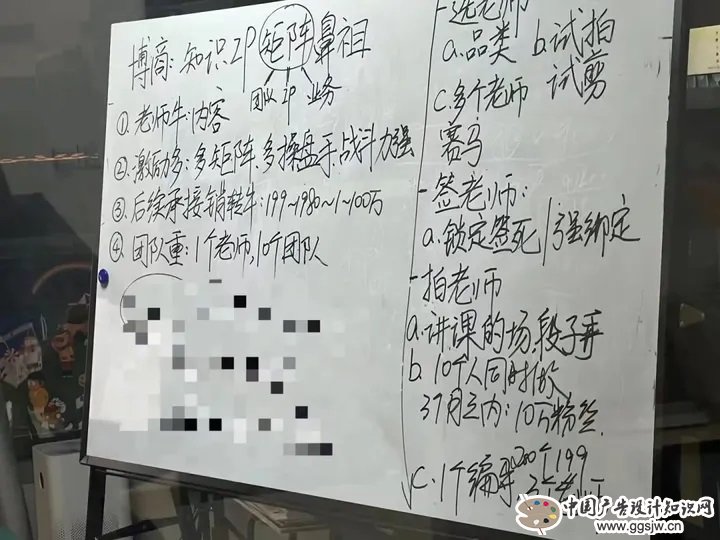 博商:知识IP矩阵鼻祖
团队 IP 业务
①老师牛:内容
②激励多:多矩阵,多操盘手,战斗力强
③后续承接销转牛:199~1980~1~100万
④团队重:1个老师,10个团队
-选老师
a.品类 b.试拍
试剪
c.多个老师
赛马
-签老师:
a.锁定签死/强绑定
-拍老师
a.讲课的场,段子弄
b.10个人同时做
3个月之内:10万粉丝
c.1个编导200个199
中国广告设计知识网
www.ggsjw.cn